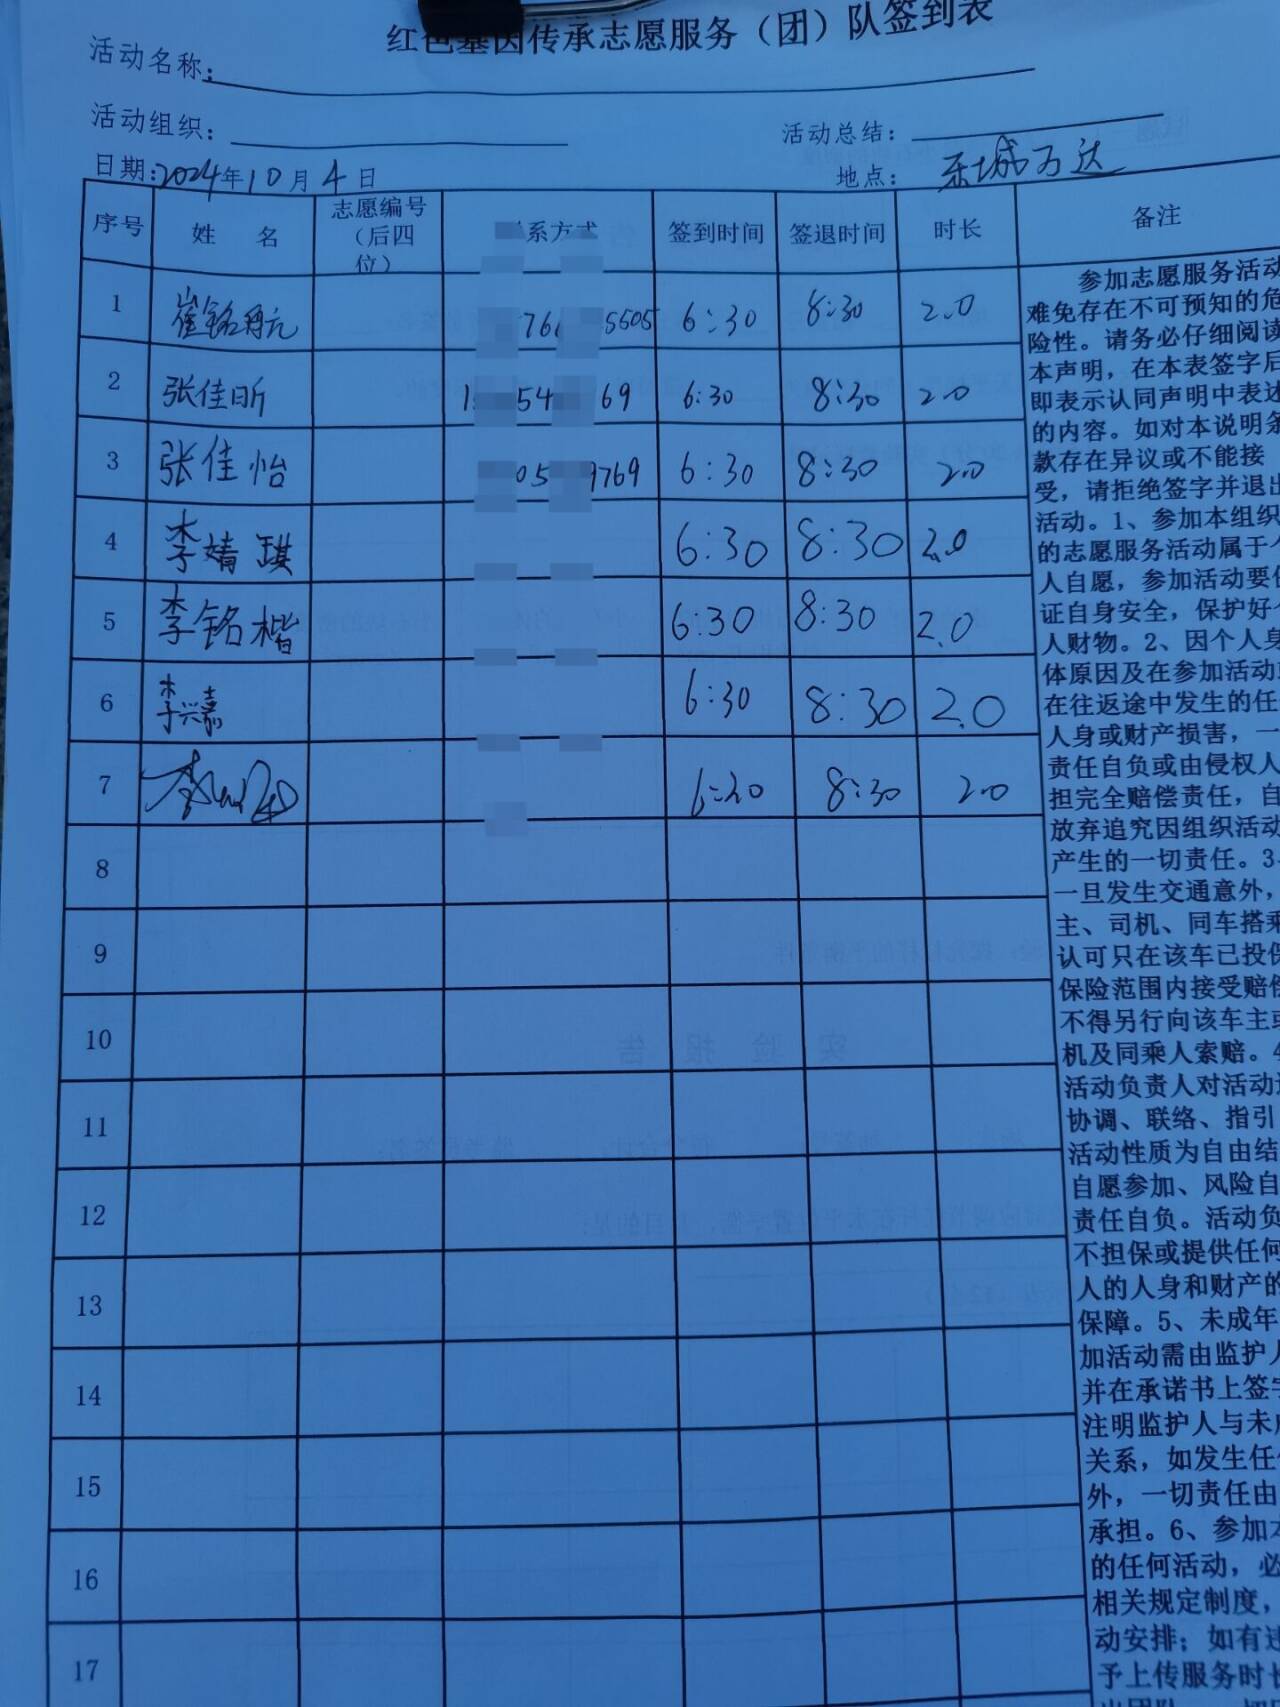 红色基因传承志愿服务（团）队签到表
活动名称：
活动组织： 活动总结：
日期:2024年10月4日 地点： 东城万达
序号 姓 名 志愿编号（后四位） 系方式 签到时间 签退时间 时长 备注
1 崔铭 76 5505 6:30 8:30 2.0
2 张佳昕 1 54 69 6:30 8:30 2.0
3 张佳怡 05 9769 6:30 8:30 2.0
4 李婧琪 6:30 8:30 2.0
5 李铭楷 6:30 8:30 2.0
6 李兴嘉 6:30 8:30 2.0
7 6:30 8:30 2.0
8
9
10
11
12
13
14
15
16
17
参加志愿服务活动
难免存在不可预知的危
险性。请务必仔细阅读
本声明，在本表签字后
即表示认同声明中表述
的内容。如对本说明条
款存在异议或不能接
受，请拒绝签字并退出
活动。1、参加本组织
的志愿服务活动属于个
人自愿，参加活动要保
证自身安全，保护好个
人财物。2、因个人身
体原因及在参加活动或
在往返途中发生的任
人身或财产损害，一
责任自负或由侵权人
担完全赔偿责任，自
放弃追究因组织活动
产生的一切责任。3、
一旦发生交通意外，
主、司机、同车搭乘
认可只在该车已投保
保险范围内接受赔偿
不得另行向该车主或
机及同乘人索赔。4
活动负责人对活动进
协调、联络、指引
活动性质为自由结
自愿参加、风险自
责任自负。活动负
不担保或提供任何
人的人身和财产的
保障。5、未成年
加活动需由监护人
并在承诺书上签字
注明监护人与未成
关系，如发生任何
外，一切责任由
承担。6、参加本
的任何活动，必
相关规定制度，
动安排；如有违
予上传服务时长
实验报告